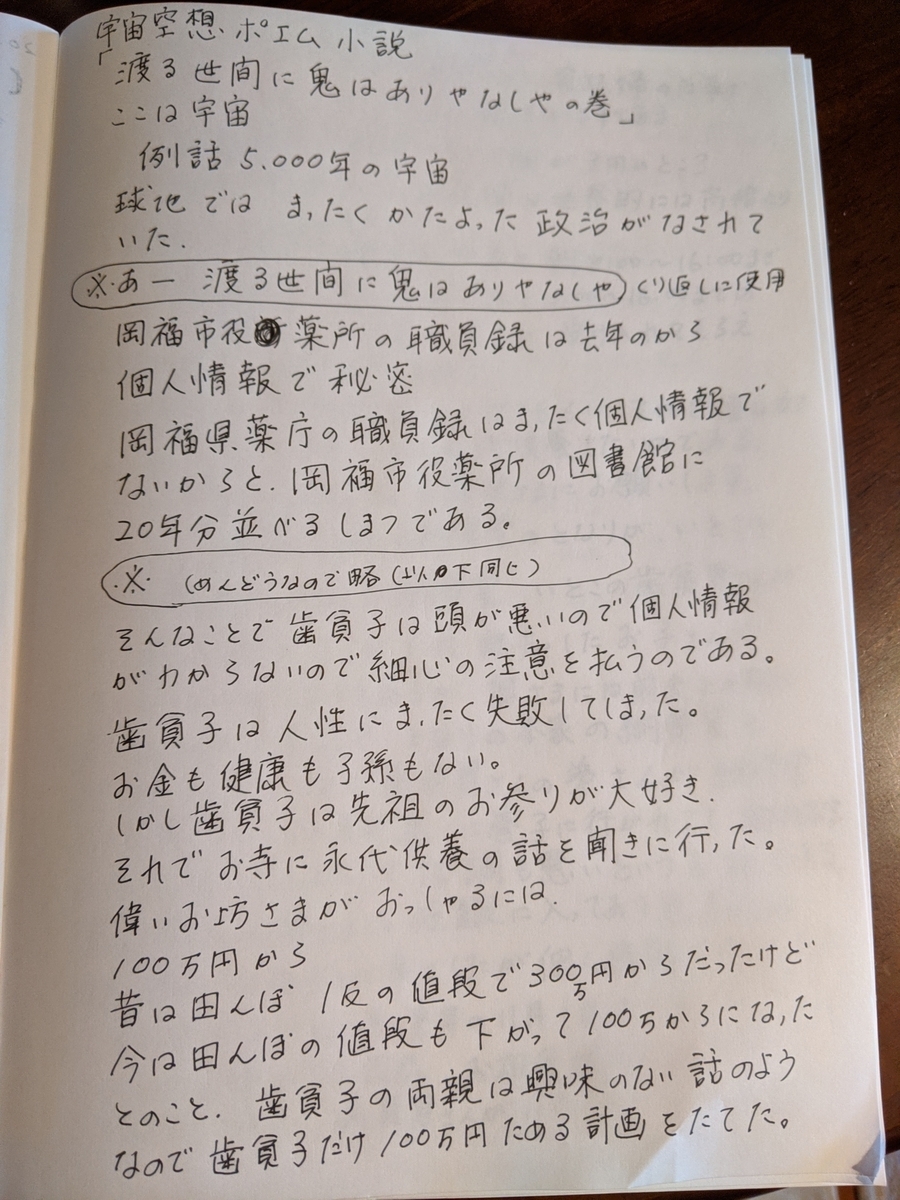 宇宙空想 ポエム 小説
「渡る世間に鬼はありやなしやの巻」
ここは宇宙
例話 5.000年の宇宙
球地では まったくかたよった 政治がなされて
いた.
※.あー 渡る世間に鬼はありやなしや くり返しに使用
岡福市役薬所の職員録は去年のから
個人情報で秘密
岡福県薬庁の職員録はまったく個人情報で
ないからと.岡福市役薬所の図書館に
20年分並べるしまつである。
※ (めんどうなので略(以下同じ)
そんなことで歯貧子は頭が悪いので個人情報
がわからないので細心の注意を払うのである。
歯貧子は人性にまったく失敗してしまった。
お金も健康も子孫もない。
しかし歯貧子は先祖のお参りが大好き.
それでお寺に永代供養の話を聞きに行った。
偉いお坊さまがおっしゃるには.
100万円から
昔は田んぼ 1反の値段で300万円からだったけど
今は田んぼの値段も下がって100万からになった
とのこと. 歯貧子の両親は興味のない話のよう
なので歯貧子だけ100万円ためる計画をたてた。